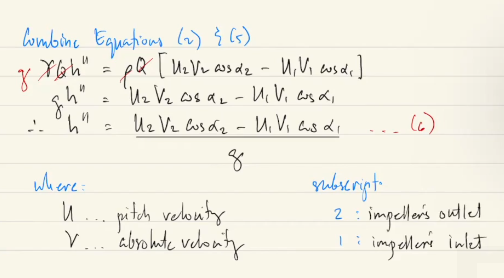 Combine Equations (2) & (5)
g γQh" = ρQ [U₂V₂ cos α₂ − U₁V₁ cos α₁]
gh" = U₂V₂ cos α₂ − U₁V₁ cos α₁
∴ h" = U₂V₂ cos α₂ − U₁V₁ cos α₁ ... (6)
g
where:
U ... pitch velocity
V ... absolute velocity
subscript:
2 : impeller's outlet
1 : impeller's inlet